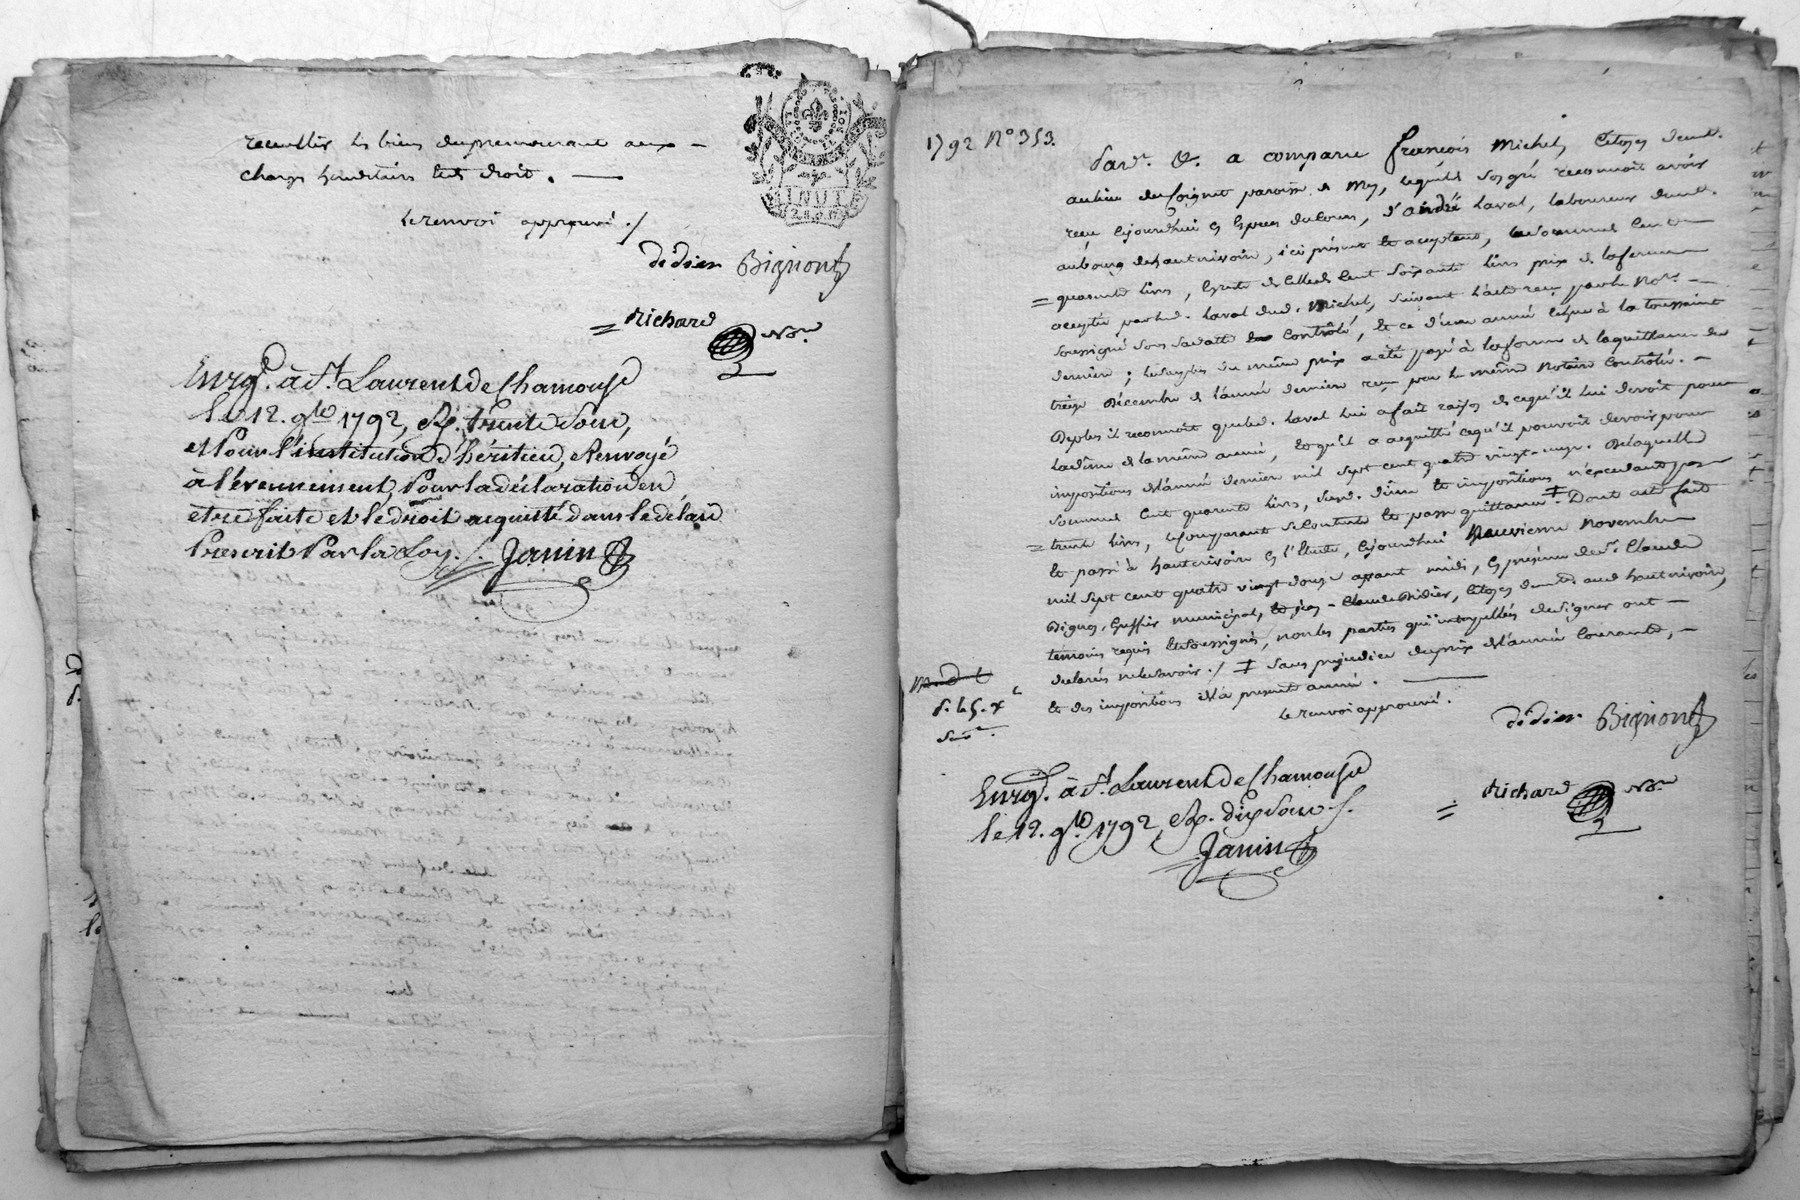 recueillir les biens du premourant aux
charges héréditaires de droit. —
le renvoi approuvé ./
didier Bignon
= Richard Nore.
Enrg. à St. Laurent de Chamousse
le 12. 9bre 1792, R. trente Sous,
et Pour l'institution d'héritier, Renvoyé
à l'évennement, Pour la déclaration en
etre faite et le droit acquitté dans le délai
Prescrit Par la Loy. /. Janin
INUT
1792 N° 353.
Pard. &. a comparu françois Michel, Citoyen demt.
au lieu du soignet paroisse de Mey, lequel de son gré reconnoit avoir
reçu cejourdhui en Especes du Cours, d'andré Laval, laboureur demt.
au bourg de hauterivoire, ici présent et acceptant, la somme de Cent
= quarante livres, Cent soixante livres prix de la ferme
acceptée par led. Laval dud. Michel, suivant l'acte reçu par le Nore. —
soussigné sous sa datte Contrôlé, et ce d'une année échue à la toussaint
derniere; le surplus du même prix a été payé à la forme de la quittance du
treize Décembre de l'année derniere reçu par le même Notaire Controlé. —
Deplus il reconnoit que led. Laval lui a fait raison de ce qu'il lui devoit pour
la dîme de la même année, et qu'il a acquitté ce qu'il pouvoit devoir pour
impositions de l'année derniere mil sept cent quatre vingt-onze. De laquelle
somme de Cent quarante livres, dime et impositions n'excedant pas
= trente livres, le comparant se contente et passe quittance. ‡ Dont acte fait
et passé à hauterivoire en l'Etude, cejourdhui Neuvieme Novembre
mil sept cent quatre vingt douze avant midi, en présence de sr. Claude
Bignon, Greffier municipal, et jean-Claude Didier, Citoyen demt. aud. hauterivoire,
témoins requis et soussignés, non les parties qui interpellées de signer ont —
déclarés ne le savoir ./ ‡ sans préjudice du prix de l'année Courante, —
et des impositions de la presente année. —
le renvoi approuvé.
didier Bignon
= Richard Nore
Enrg. à St. Laurent de Chamousse
le 12. 9bre 1792, R. dix Sous /.
Janin